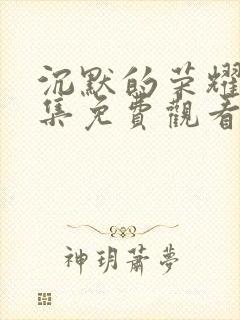 沉默的荣耀
集免費觀看
神玥蕭夢